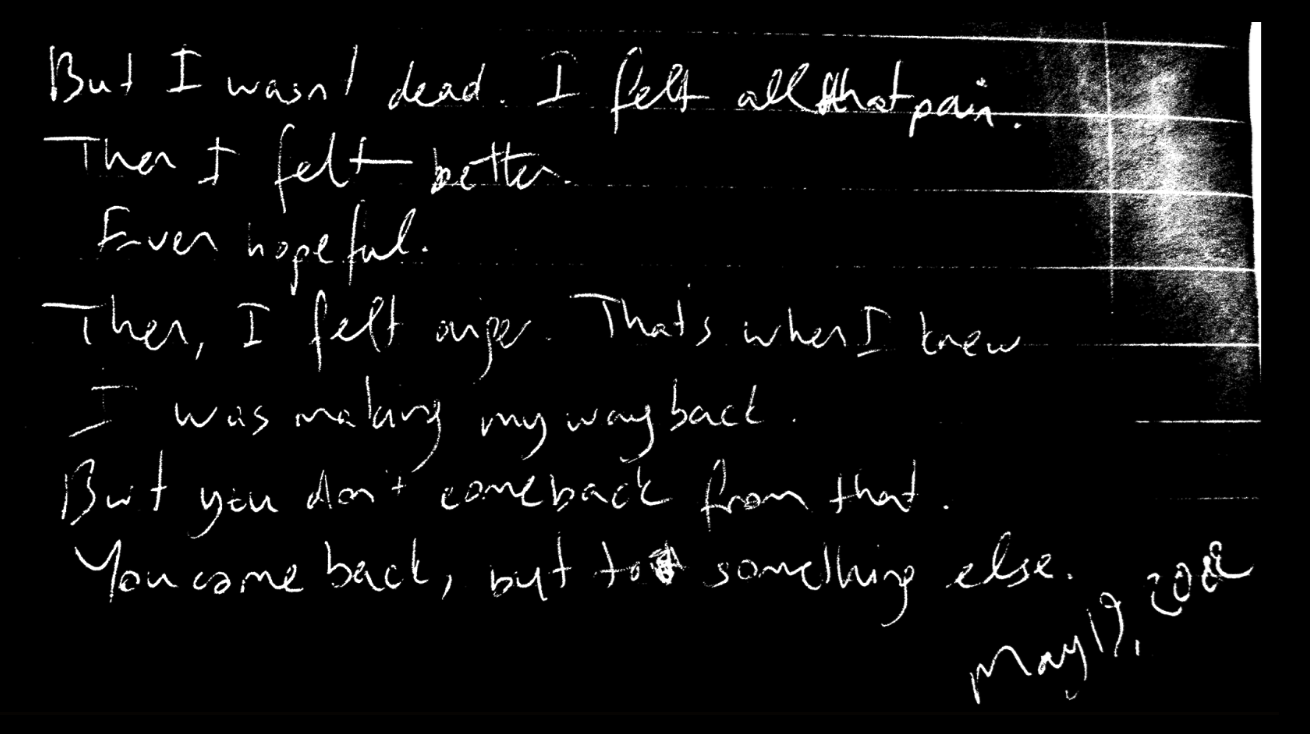 But I wasn't dead. I felt all that pain.
Then I felt better.
Even hopeful.
Then, I felt anger. That's when I knew
I was making my way back.
But you don't come back from that.
You come back, but to something else.
May 19, 2022